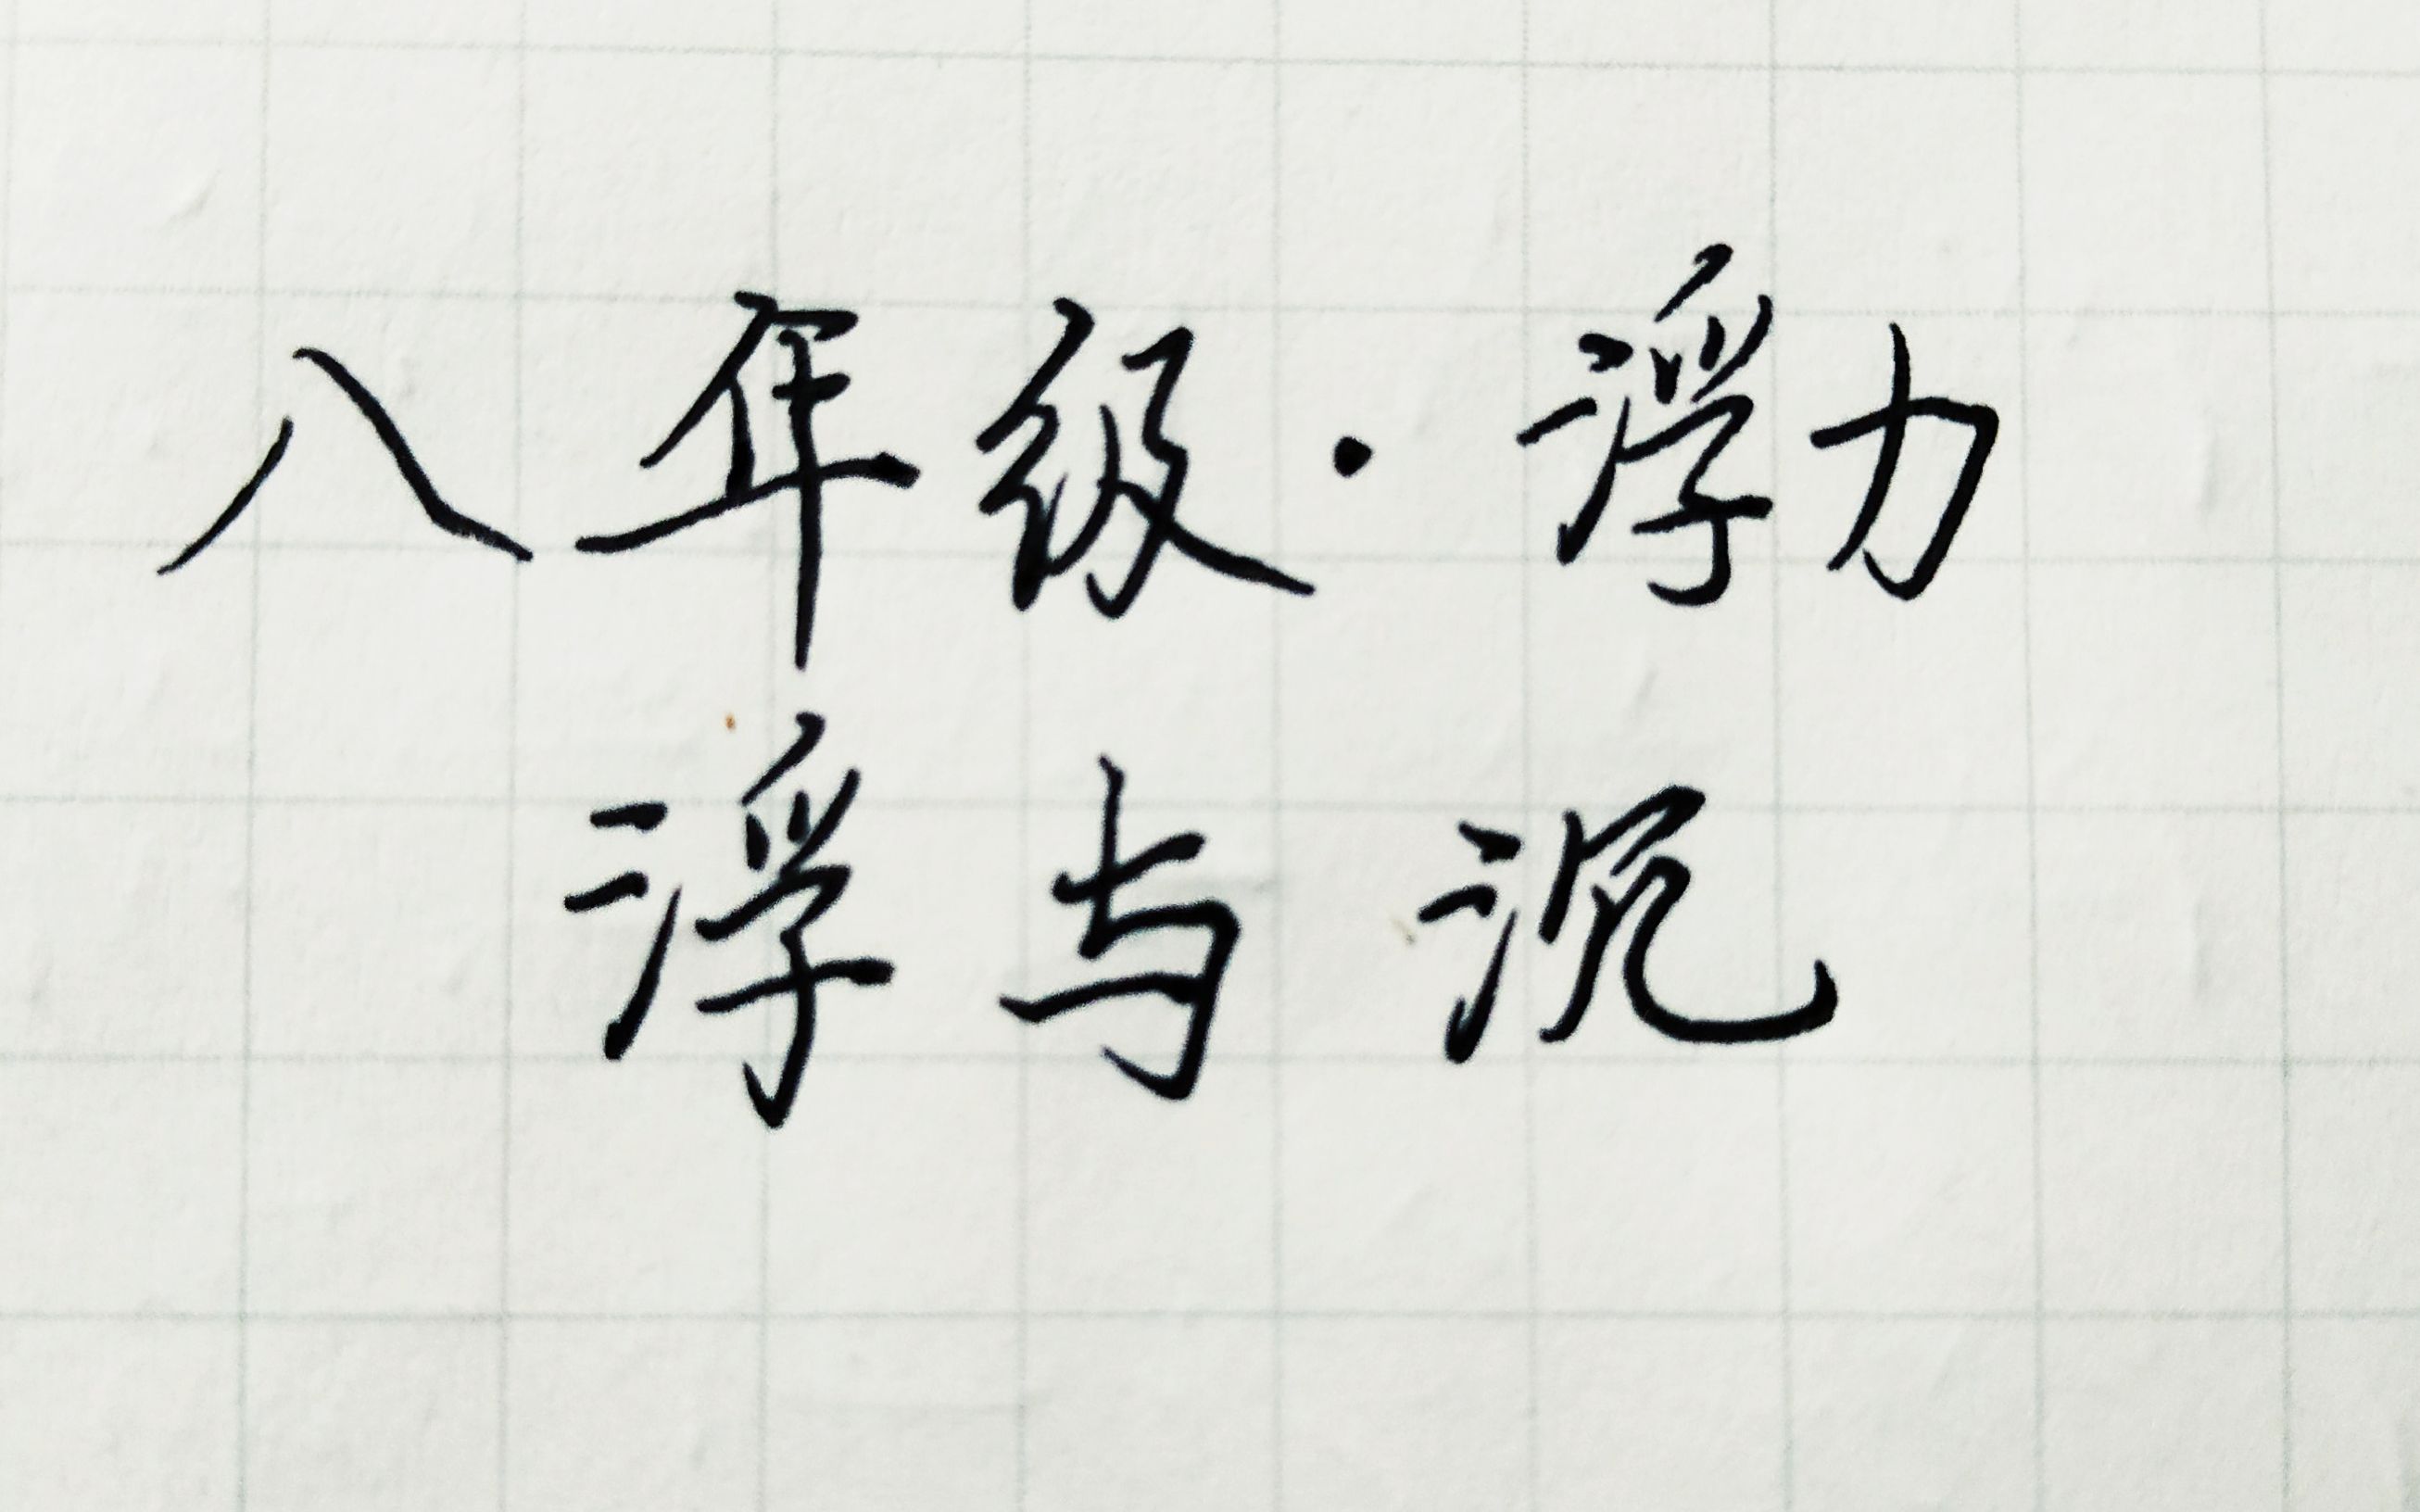 八年级·浮力
浮与沉